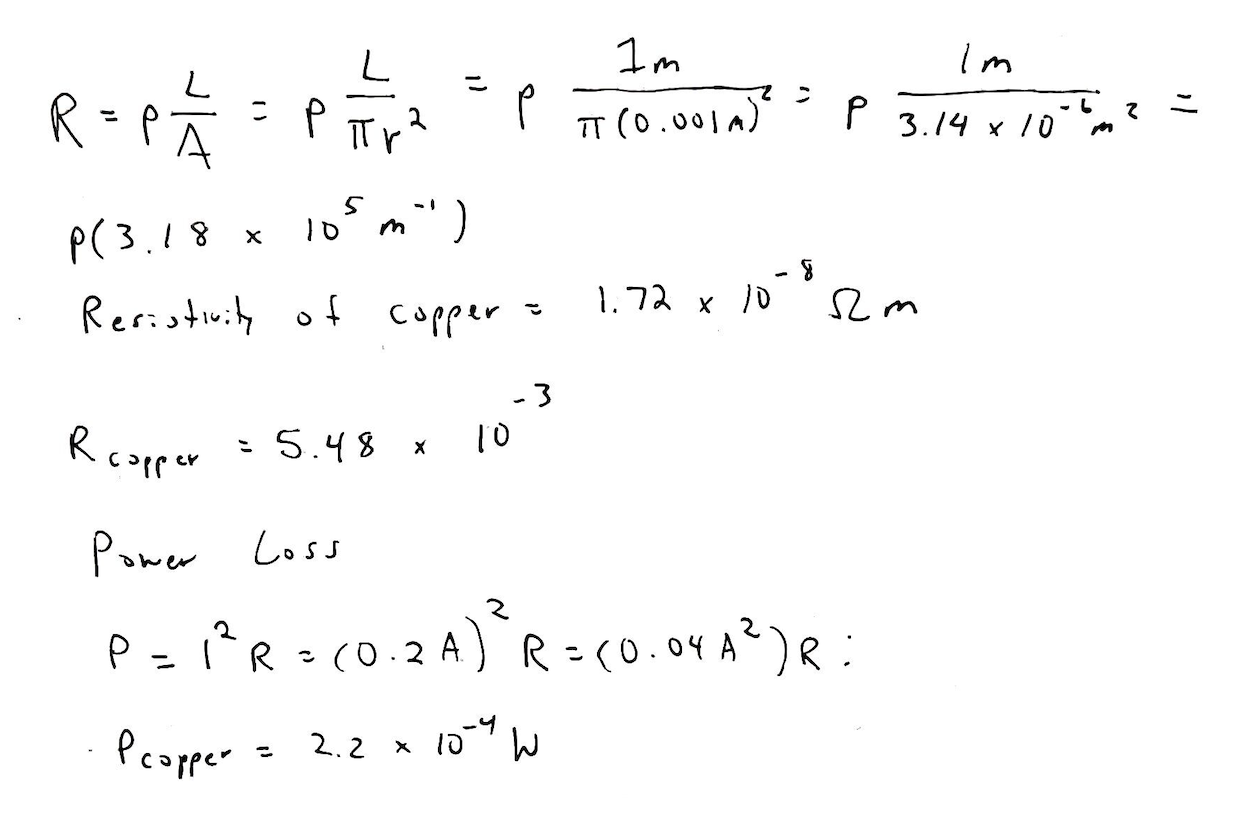 R = ρ L/A = ρ L/πr² = ρ 1m/π(0.001m)² = ρ 1m/3.14 × 10⁻⁶m² =
ρ(3.18 × 10⁵ m⁻¹)
Resistivity of copper = 1.72 × 10⁻⁸ Ωm
R copper = 5.48 × 10⁻³
Power Loss
P = I²R = (0.2 A)² R = (0.04 A²)R :
Pcopper = 2.2 × 10⁻⁴ W